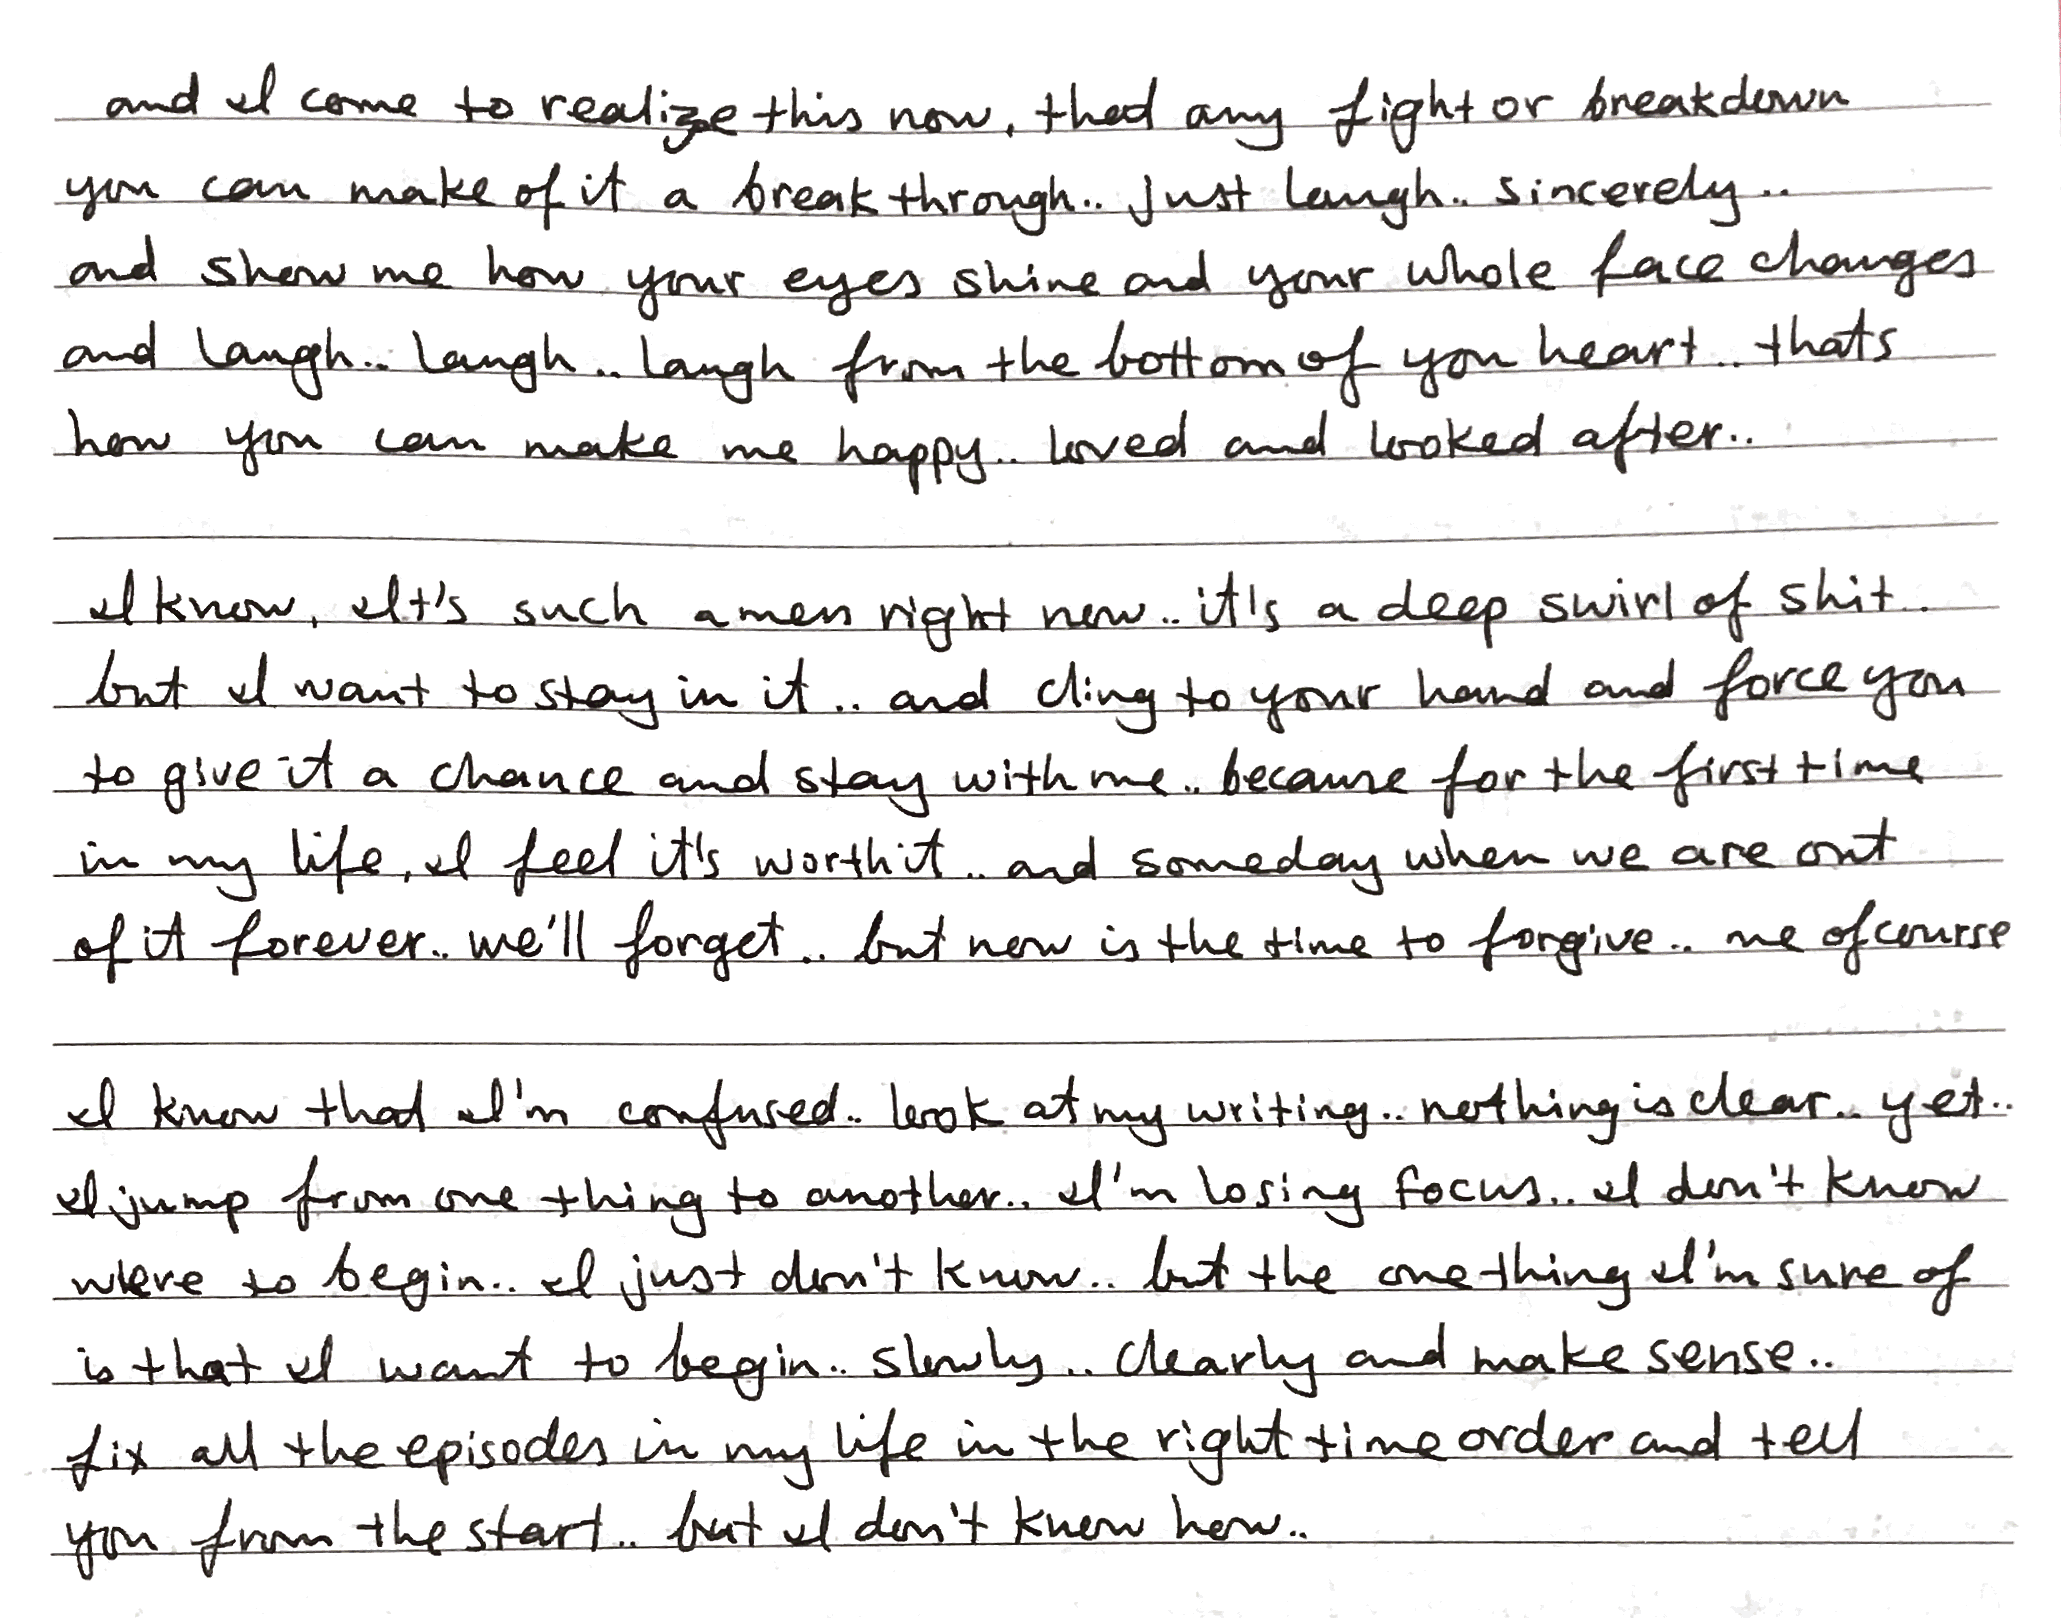 and I come to realize this now, that any fight or breakdown
you can make of it a breakthrough.. just laugh.. sincerely..
and show me how your eyes shine and your whole face changes
and laugh.. laugh.. laugh from the bottom of you heart.. thats
how you can make me happy.. loved and looked after..
I know, It's such a mess right now.. it's a deep swirl of shit..
but I want to stay in it.. and cling to your hand and force you
to give it a chance and stay with me.. because for the first time
in my life, I feel it's worth it.. and someday when we are out
of it forever.. we'll forget.. but now is the time to forgive.. me of course
I know that I'm confused.. look at my writing.. nothing is clear.. yet..
I jump from one thing to another.. I'm losing focus.. I don't know
where to begin.. I just don't know.. but the one thing I'm sure of
is that I want to begin.. slowly.. clearly and make sense..
fix all the episodes in my life in the right time order and tell
you from the start.. but I don't know how..